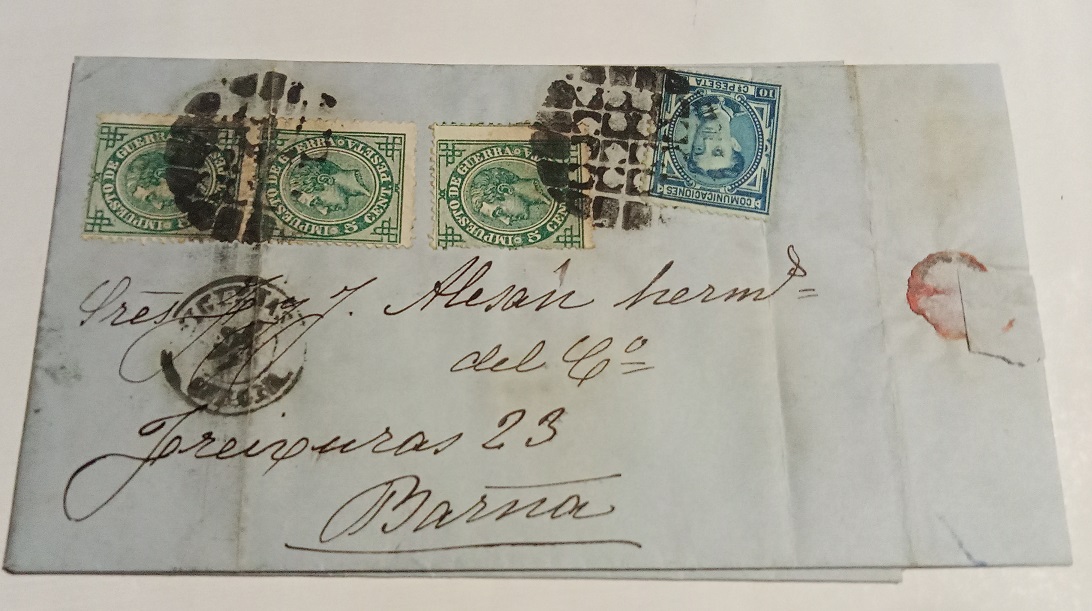 IMPUESTO DE GUERRA 5
IMPUESTO DE GUERRA 5 CENT PESETA
IMPUESTO DE GUERRA 5 CEN
COMUNICACIONES
10 Cs PESETA
Sres. J. Alesán herms
del Co
Freixuras 23
Barna